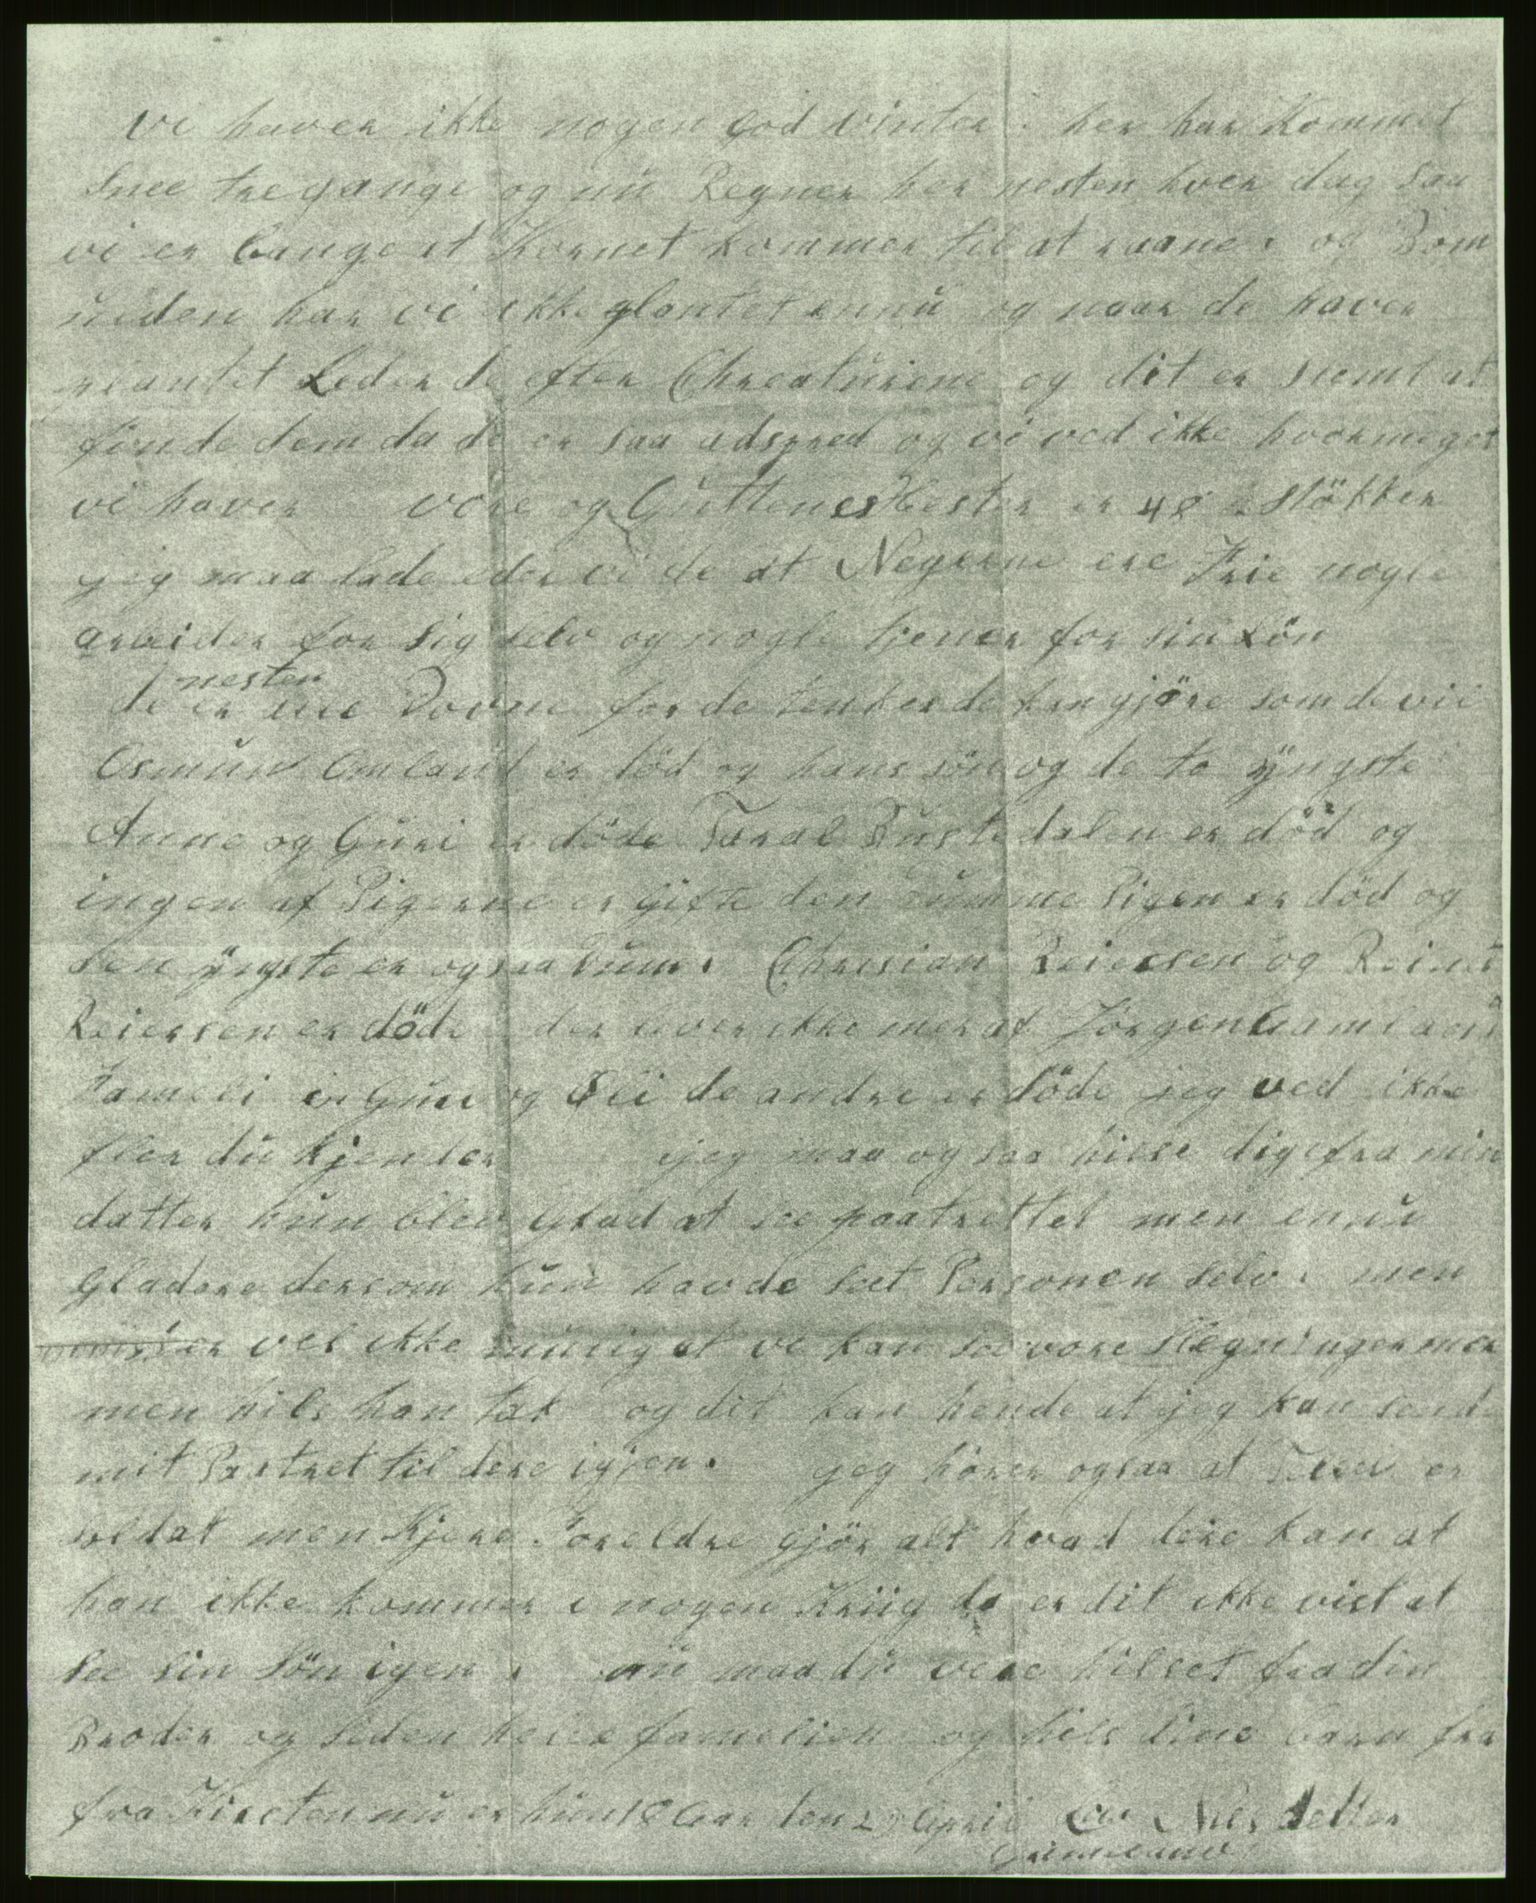 Vi haver ikke nogen God Vinter. her har Kommet
Snee tre gange og nu Regner her nesten hver dag saa
vi er bange at Kornet kommer til at raane. og Bom
ulden har vi ikke plantet ennu og naar de haver
plantet Leder de efter Chreaturene og dit er slemt at
finde dem da de er saa adspred og vi ved ikke hvormeget
vi haver vore og Guttenes Hester er 48 stökker
jeg maa lade eder vide at Negerne ere Frie nogle
arbeider for sig selv og nogle tjener for sin Lön
nesten
de er Dovne for de tenker de kan gjöre som de vil
Osmun Omland er död og hans sön og de to yngste
Anne og Guri er döde Taral Bustedalen er död og
ingen af Pigerne er Gifte den Dumme Pigen er död og
den yngste er ogsaa Dum. Chrisian Reiersen og Reinert
Reiersen er döde der lever ikke mer af Jörgen Aamland
Fameli en Guri og de andre er döde jeg ved ikke
fler du kjender jeg maa ogsaa hilse dig fra min
datter hun blev Glad at see paatrettet men ennu
Gladere dersom hun havde seet Personen selv. men
er vel ikke at vi kan see vore Slegninger mer
men hils han tak og dit kan hende at jeg kan send
mit Partret til dere igjen. jeg hörer ogsaa at er
soldat men Kjere Foreldre gjör alt hvad dere kan at
han ikke kommer i nogen Kriig da er dit ikke vist at
see sin Sön igen. nu maa du vere hilset fra din
Broder og siden hele famelien og hils dine barn fra
fra Kirsten nu er hun 18 Aar den 29 April Nilsdatter